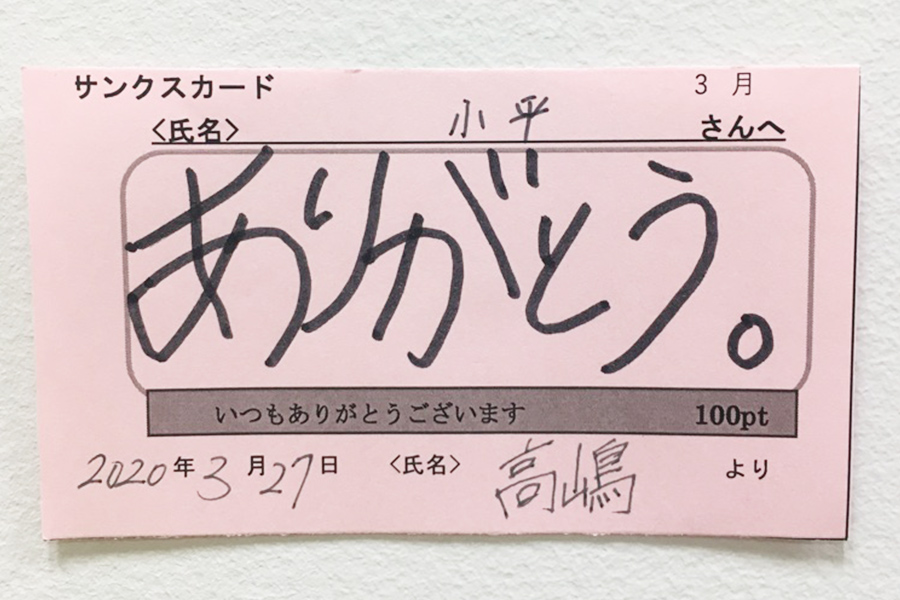 サンクスカード 3月
<氏名> 小平 さんへ
ありがとう。
いつもありがとうございます 100pt
2020年3月27日 <氏名> 高嶋 より